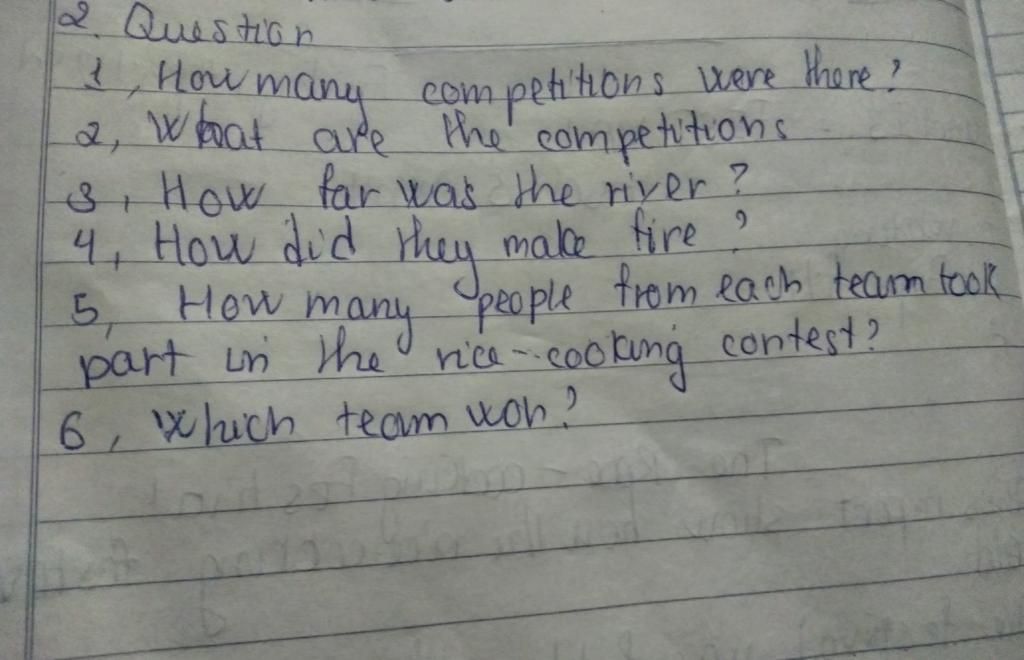 2. Question
1, How many competitions were there?
2, What are the competitions
3, How far was the river?
4, How did they make fire?
5, How many people from each team took
part in the rice-cooking contest?
6, Which team won?